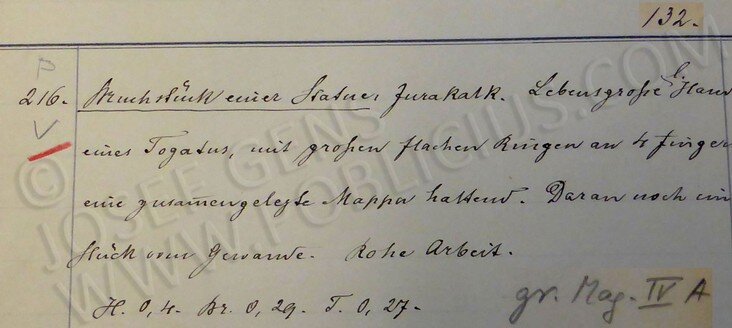 132.
P
216. Bruchstück einer Statue, Jurakalk. Lebensgroße l. Han
V
eines Togatus, mit großen flachen Ringen an 4 Finger
eine zusammengelegte Mappa haltend. Daran noch ein
Stück vom Gewande. Rohe Arbeit.
H. 0,4. Br. 0,29. T. 0,27.
gr. Mag. IV A
© JOSEF GENS
WWW.POBLICIUS.COM